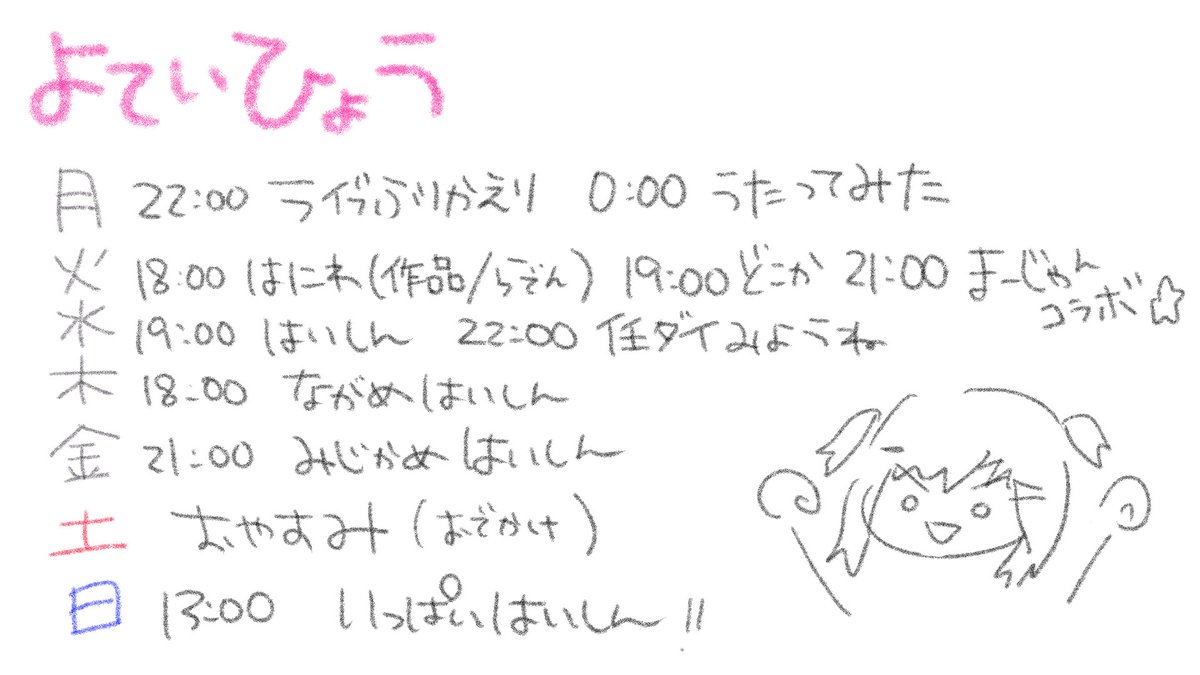 よていひょう
月 22:00 ライヴふりかえり 0:00 うたってみた
火 18:00 はにわ(作品/らでん) 19:00 どこか 21:00 まーじゃんコラボ☆
水 19:00 はいしん 22:00 任ダイみようね
木 18:00 ながめはいしん
金 21:00 みじかめはいしん
土 おやすみ(おでかけ)
日 13:00 いっぱいはいしん!!